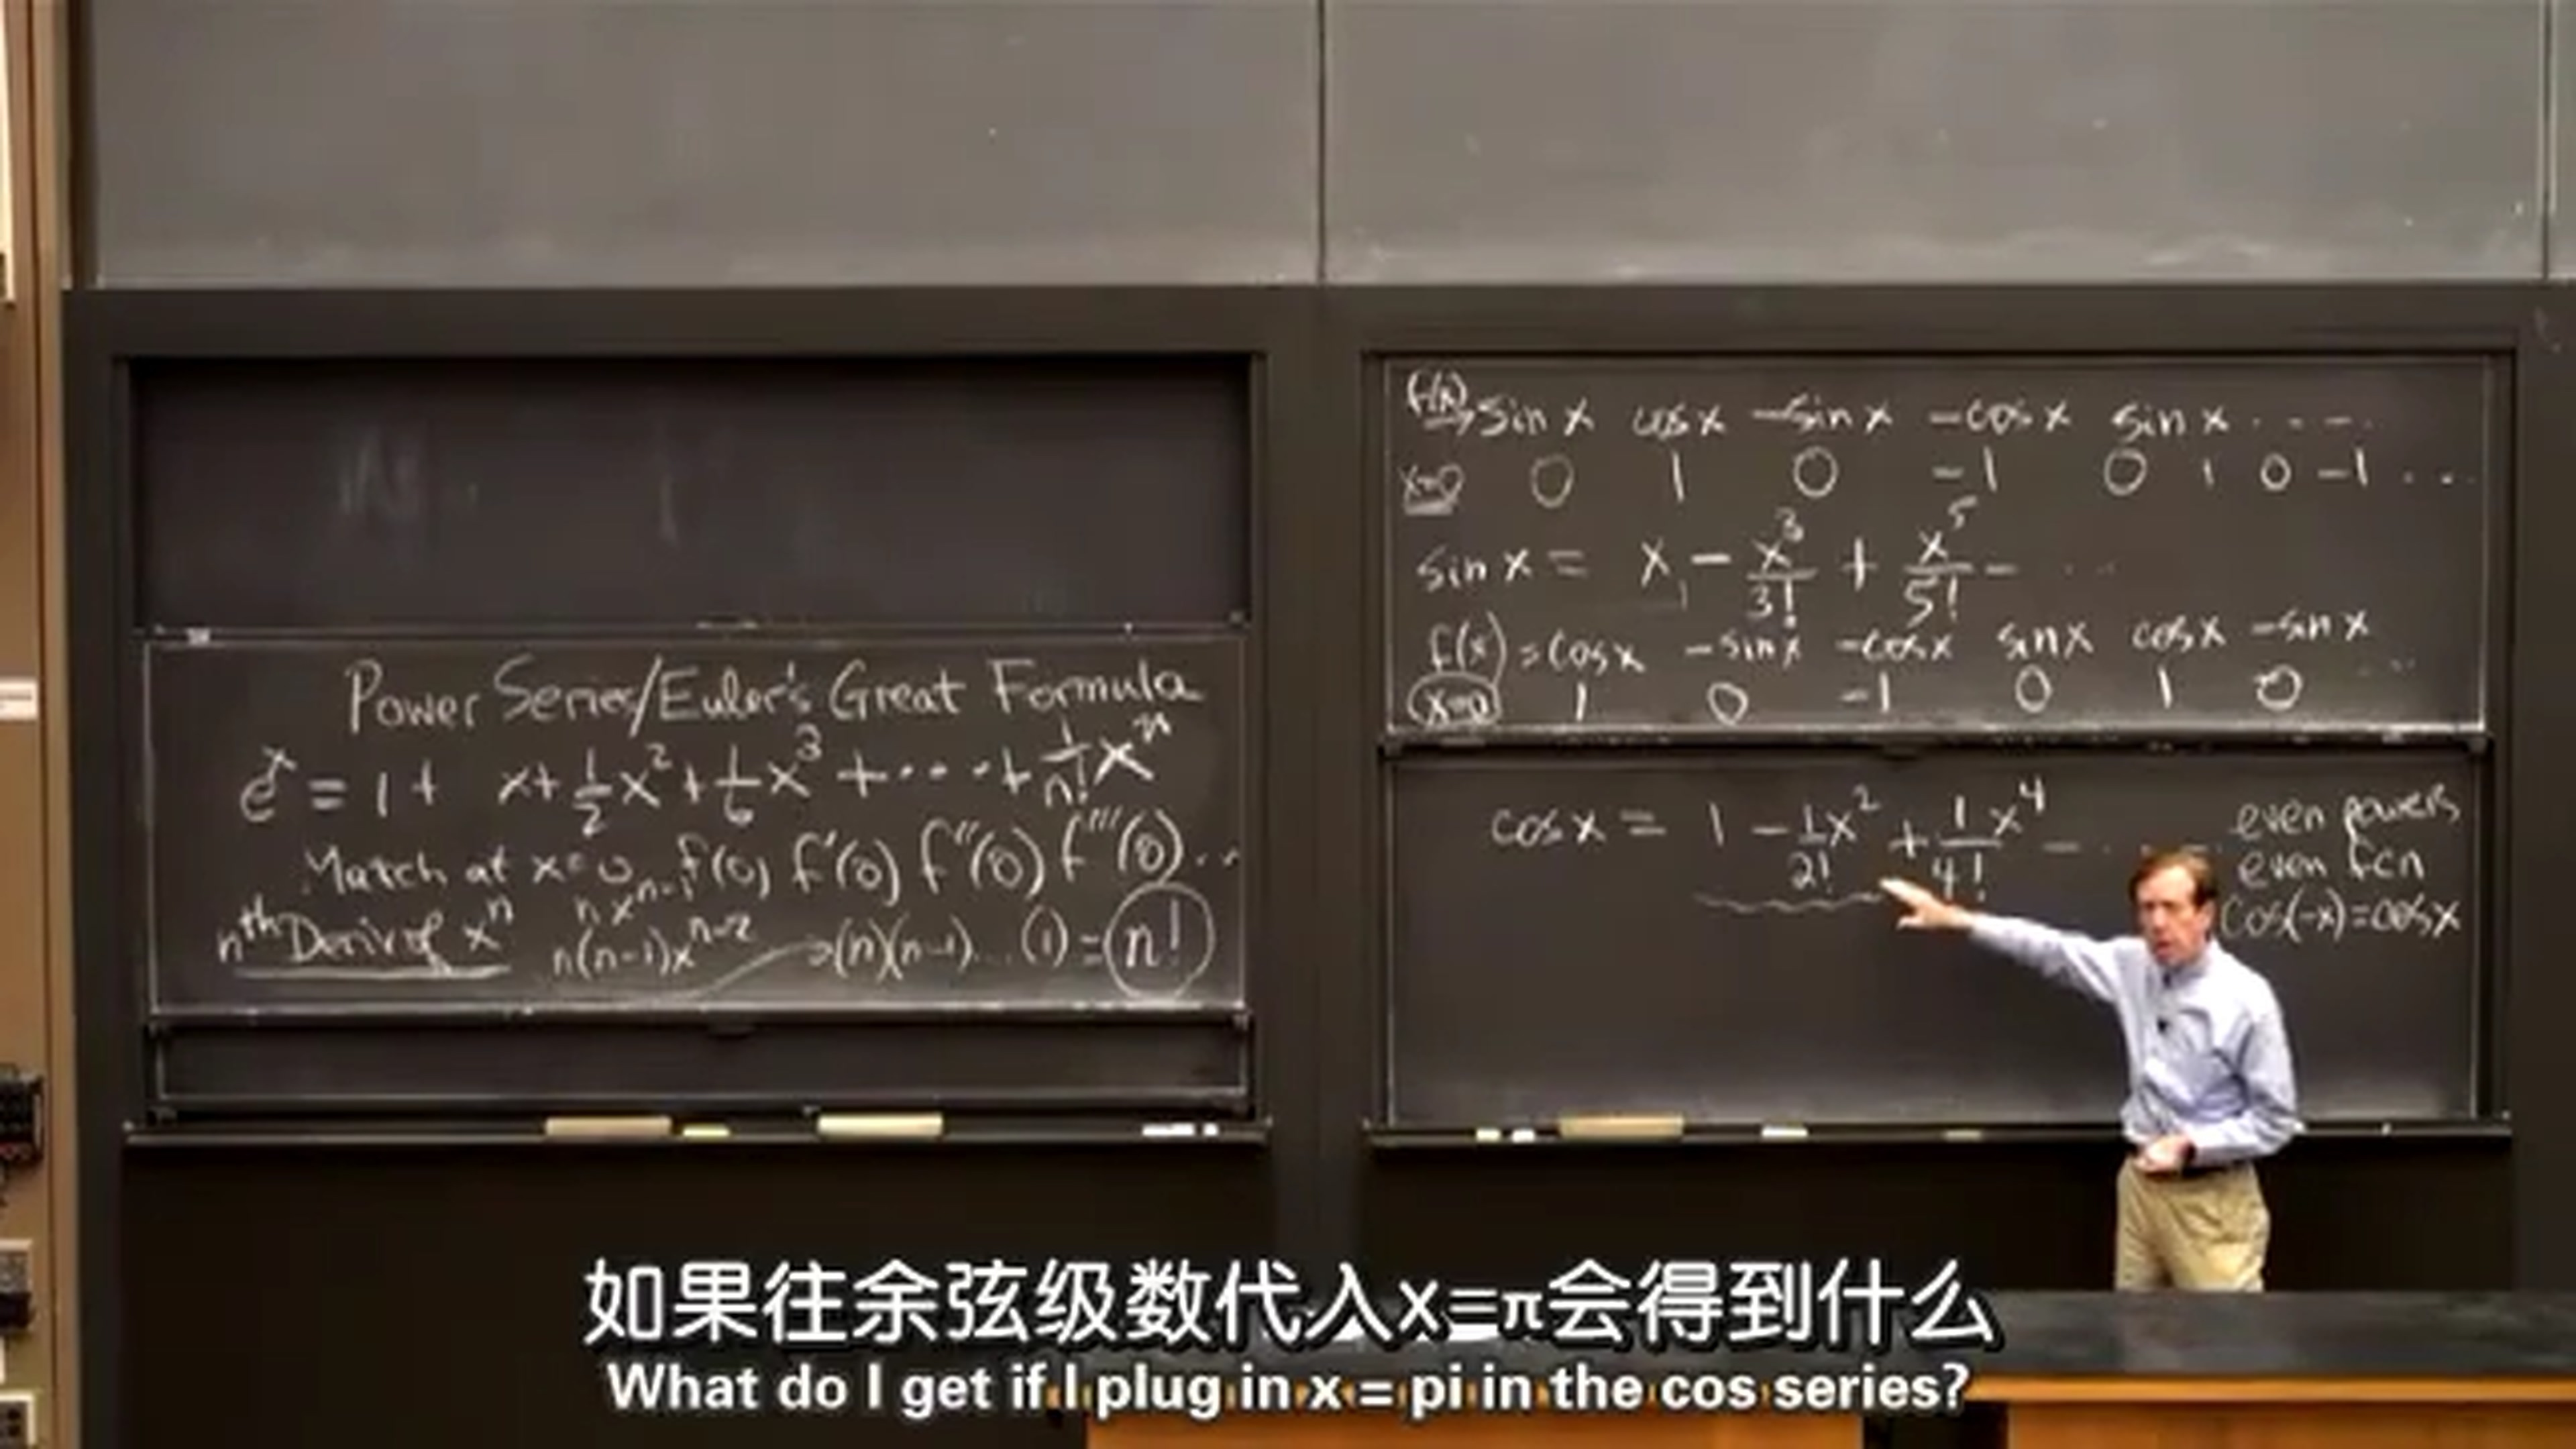 Power Series/Euler's Great Formula
e^x = 1 + x + 1/2 x^2 + 1/6 x^3 + ··· + 1/n! x^n
Match at x=0 f(0) f'(0) f''(0) f'''(0)...
nth Deriv of x^n nx^{n-1}
n(n-1)x^{n-2} → (n)(n-1)...(1) = n!
f(x) → sin x cos x -sin x -cos x sin x ....
x=0 0 1 0 -1 0 1 0 -1 ...
sin x = x - x^3/3! + x^5/5! - ...
f(x) = cos x -sin x -cos x sin x cos x -sin x
x=0 1 0 -1 0 1 0 ...
cos x = 1 - 1/2! x^2 + 1/4! x^4 - ...
even powers
even fcn
cos(-x)=cos x
如果往余弦级数代入x=π会得到什么
What do I get if I plug in x = pi in the cos series?